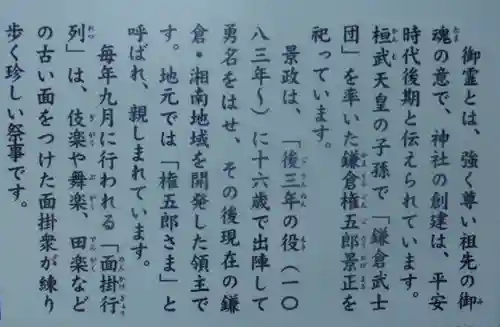 御霊とは、強く尊い祖先の御
魂の意で、神社の創建は、平安
時代後期と伝えられています。
桓武天皇の子孫で「鎌倉武士
団」を率いた鎌倉権五郎景正を
祀っています。
景政は、「後三年の役（一〇
八三年〜）に十六歳で出陣して
勇名をはせ、その後現在の鎌
倉・湘南地域を開発した領主で
す。地元では「権五郎さま」と
呼ばれ、親しまれています。
毎年九月に行われる「面掛行
列」は、伎楽や舞楽、田楽など
の古い面をつけた面掛衆が練り
歩く珍しい祭事です。